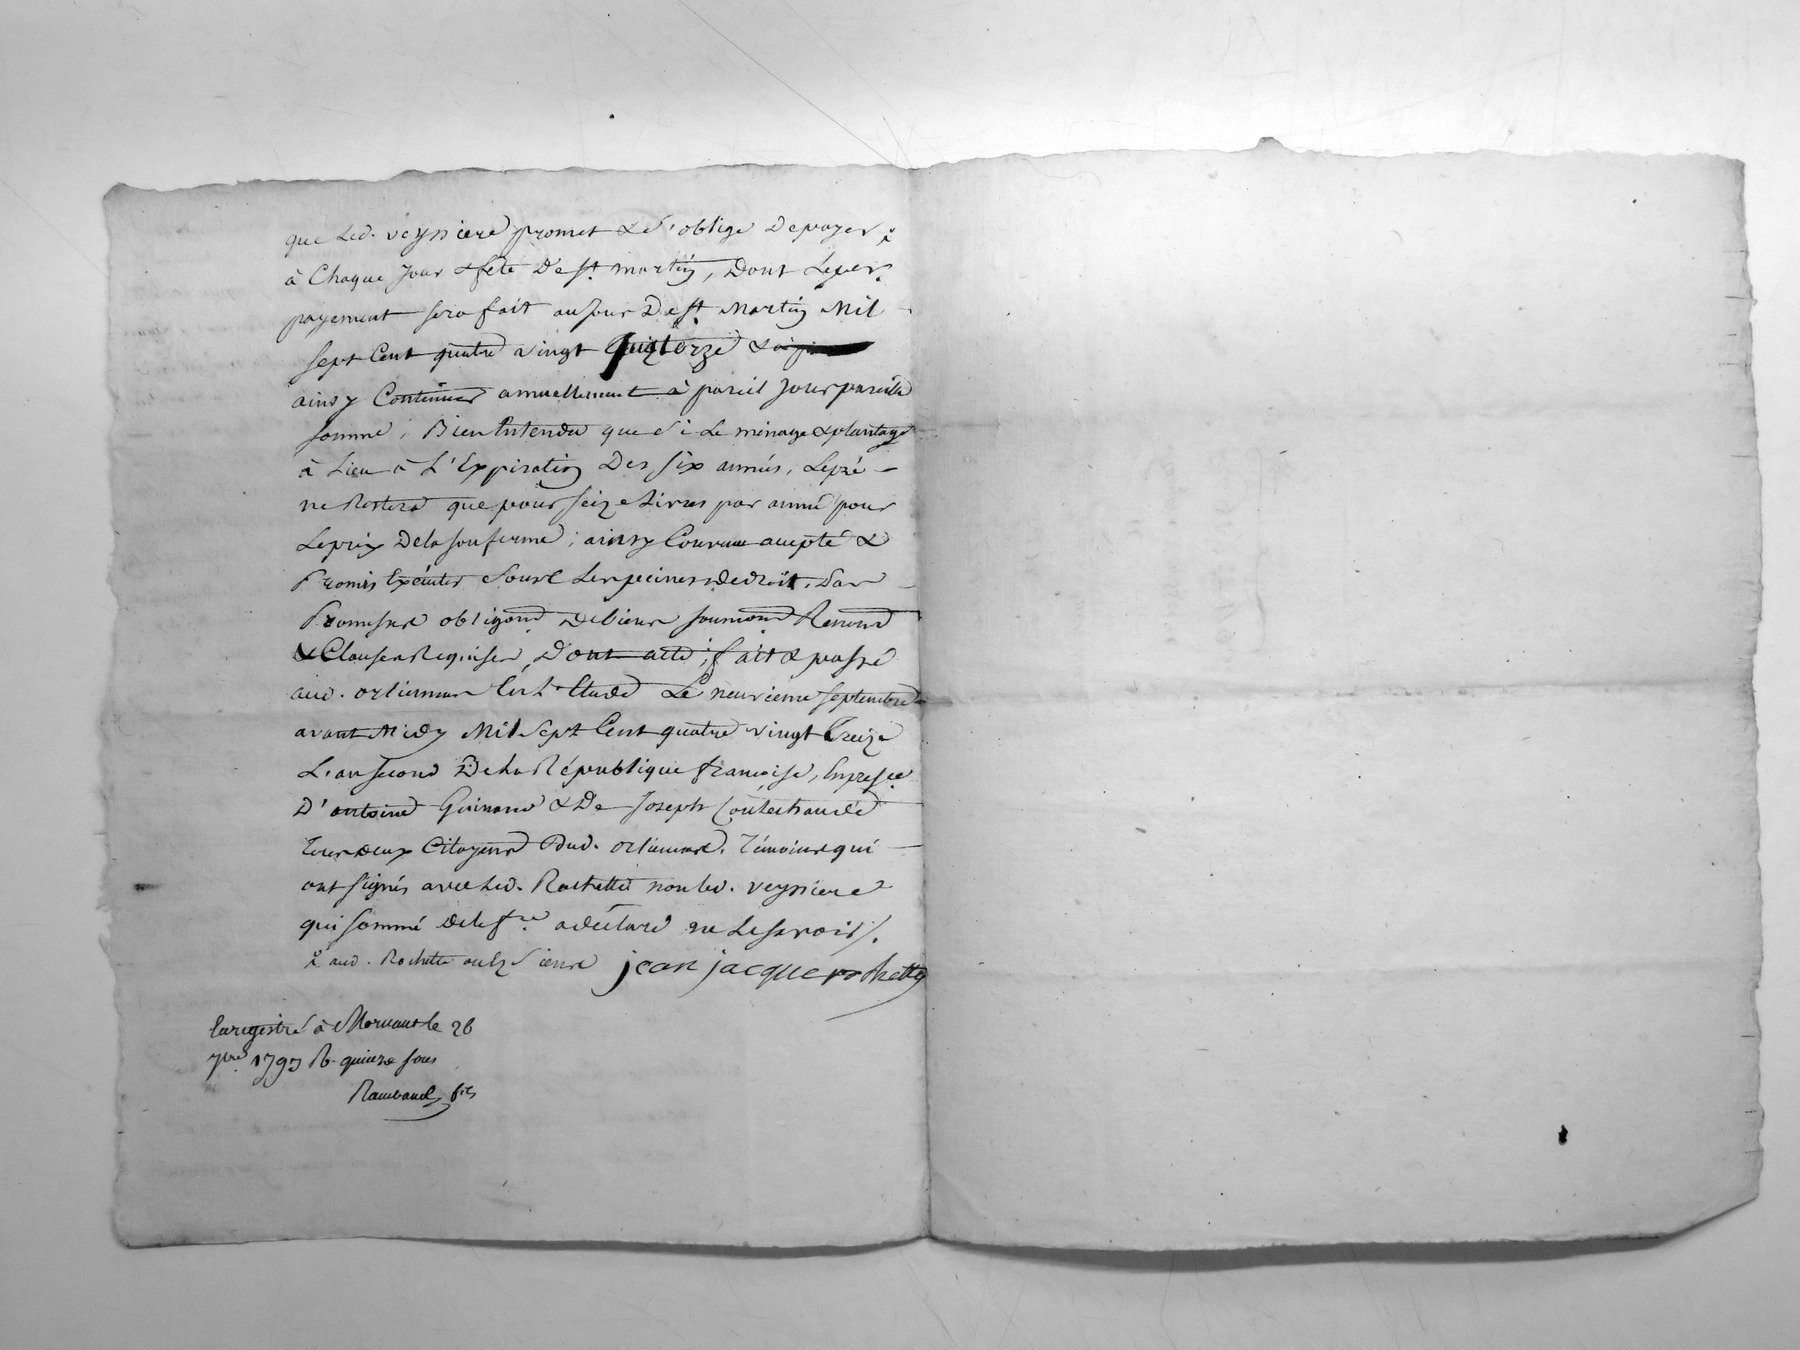 que Led. veyssiere promet & s'oblige de payer
à Chaque Jour & fete De st. martin, Dont Le per.
payement sera fait au Jour De st. Martin Mil
sept Cent quatre vingt quatorze &
ainsy Continuer annuellement à pareil Jour pareille
somme ; Bien Entendu que si Le minage & plantage
à Lieu à L'Expiration Des six années, Le pré
ne Restera que pour seize Livres par année pour
Le prix De la sou ferme ; ainsy Convenu accepté &
Promis Exécuter sous Les peines de droit, Par
Promesses obligaond de biens soumaond Renond
& Clauses Requises, Dont acte ; fait & passé
aud. orliennas En L'Etude Le neuvieme septembre
avant Midy Mil sept Cent quatre vingt treize
L'an second De La République françoise, En presce.
D'antoine Guinand & De Joseph
tous deux Citoyens Dud. orliennas. Témoins qui
ont signés avec Led. Rochette non led. veyssiere
qui sommé de le fre. a déclaré ne Le savoir /.
aud. Rochette ou Es siens jean jacque rochette
Enregistré à Mornant le 26
7bre. 1793 R. quinze sous
Raimbaud fils